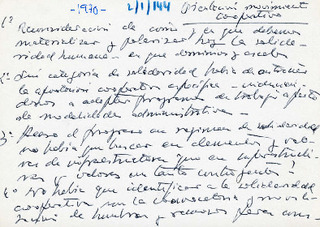 -1970- 2/1/144 Dicotomi movimiento
cooperativo
1º Reconsideración de como, en que debemos
materializar y polarizar hoy la solida-
ridad humana - en que dominios y escalas
2º Sin categoria de solidaridad había de
la aportación cooperativa específica -
a adoptar programas de trabajo aparte
de modalidades administrativas -
3º el programa en regimen de solidaridad
no había que buscar en elementos y
de infraestructura que en superestructu-
ras y valores un tanto contingentes?
4º No había que identificar a la solidaridad
cooperativa con la convocatoria y movili-
zación de hombres y recursos para